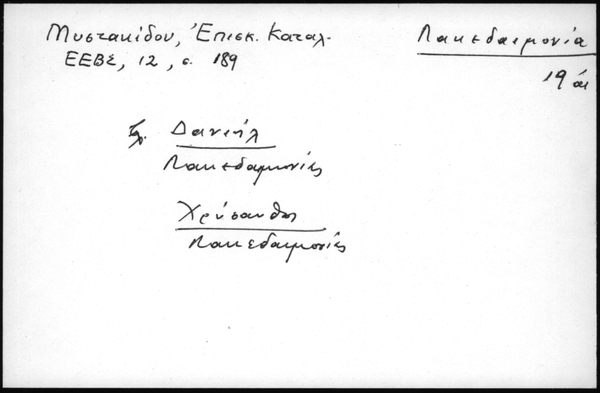 Μυστακίδου, Ἐπισκ. Καταλ.
ΕΕΒΣ, 12, σ. 189
Λακεδαιμονία
19 αἰ
βλ. Δανιήλ
Λακεδαιμονίας
Χρύσανθος
Λακεδαιμονίας